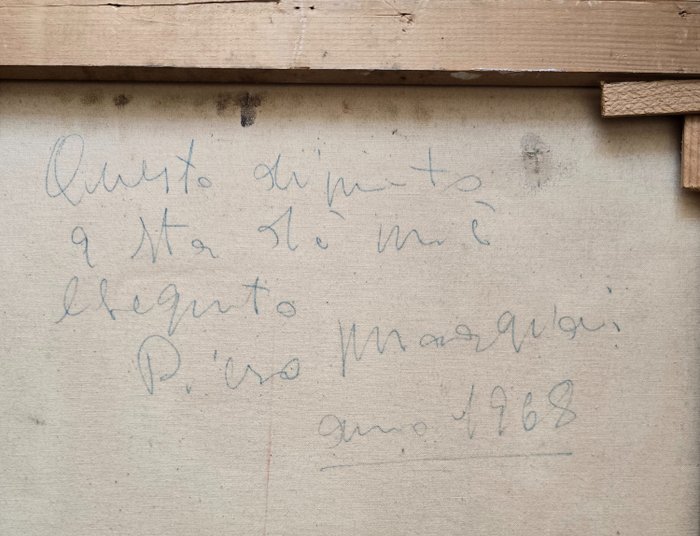 Questo dipinto
è sta dà me è
eseguito
Piero Marquai
anno 1968